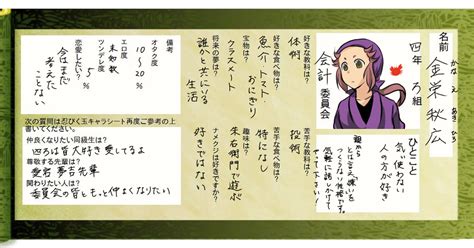 名前
かな え あき ひろ
金栄 秋広
四年 ろ組
会計 委員会
ひとこと
気い使わない
人の方が好き
気軽に話しかけて
下さい!
好きな教科は?
体術
好きな食べ物は?
魚介 トマト
おにぎり
宝物は?
クラスメート
将来の夢は?
誰かと共にいる
生活
苦手な教科は?
投術
苦手な食べ物は?
特になし
趣味は?
で遊ぶ
ナメクジは好きですか?
好きでない
備考
オタク度
10~20%
エロ度
未知数
ツンデレ度
5%
恋愛したい?
今はまだ
考えた
ことない
次の質問は忍びく玉キャラシート再度ご参考の上
書いてください。
仲良くなりたい同級生は?
四ろは皆大好き愛してるよ
尊敬する先輩は?
夢吉先輩
関わりたい人は?
委員会の皆ともっと仲よくなりたい